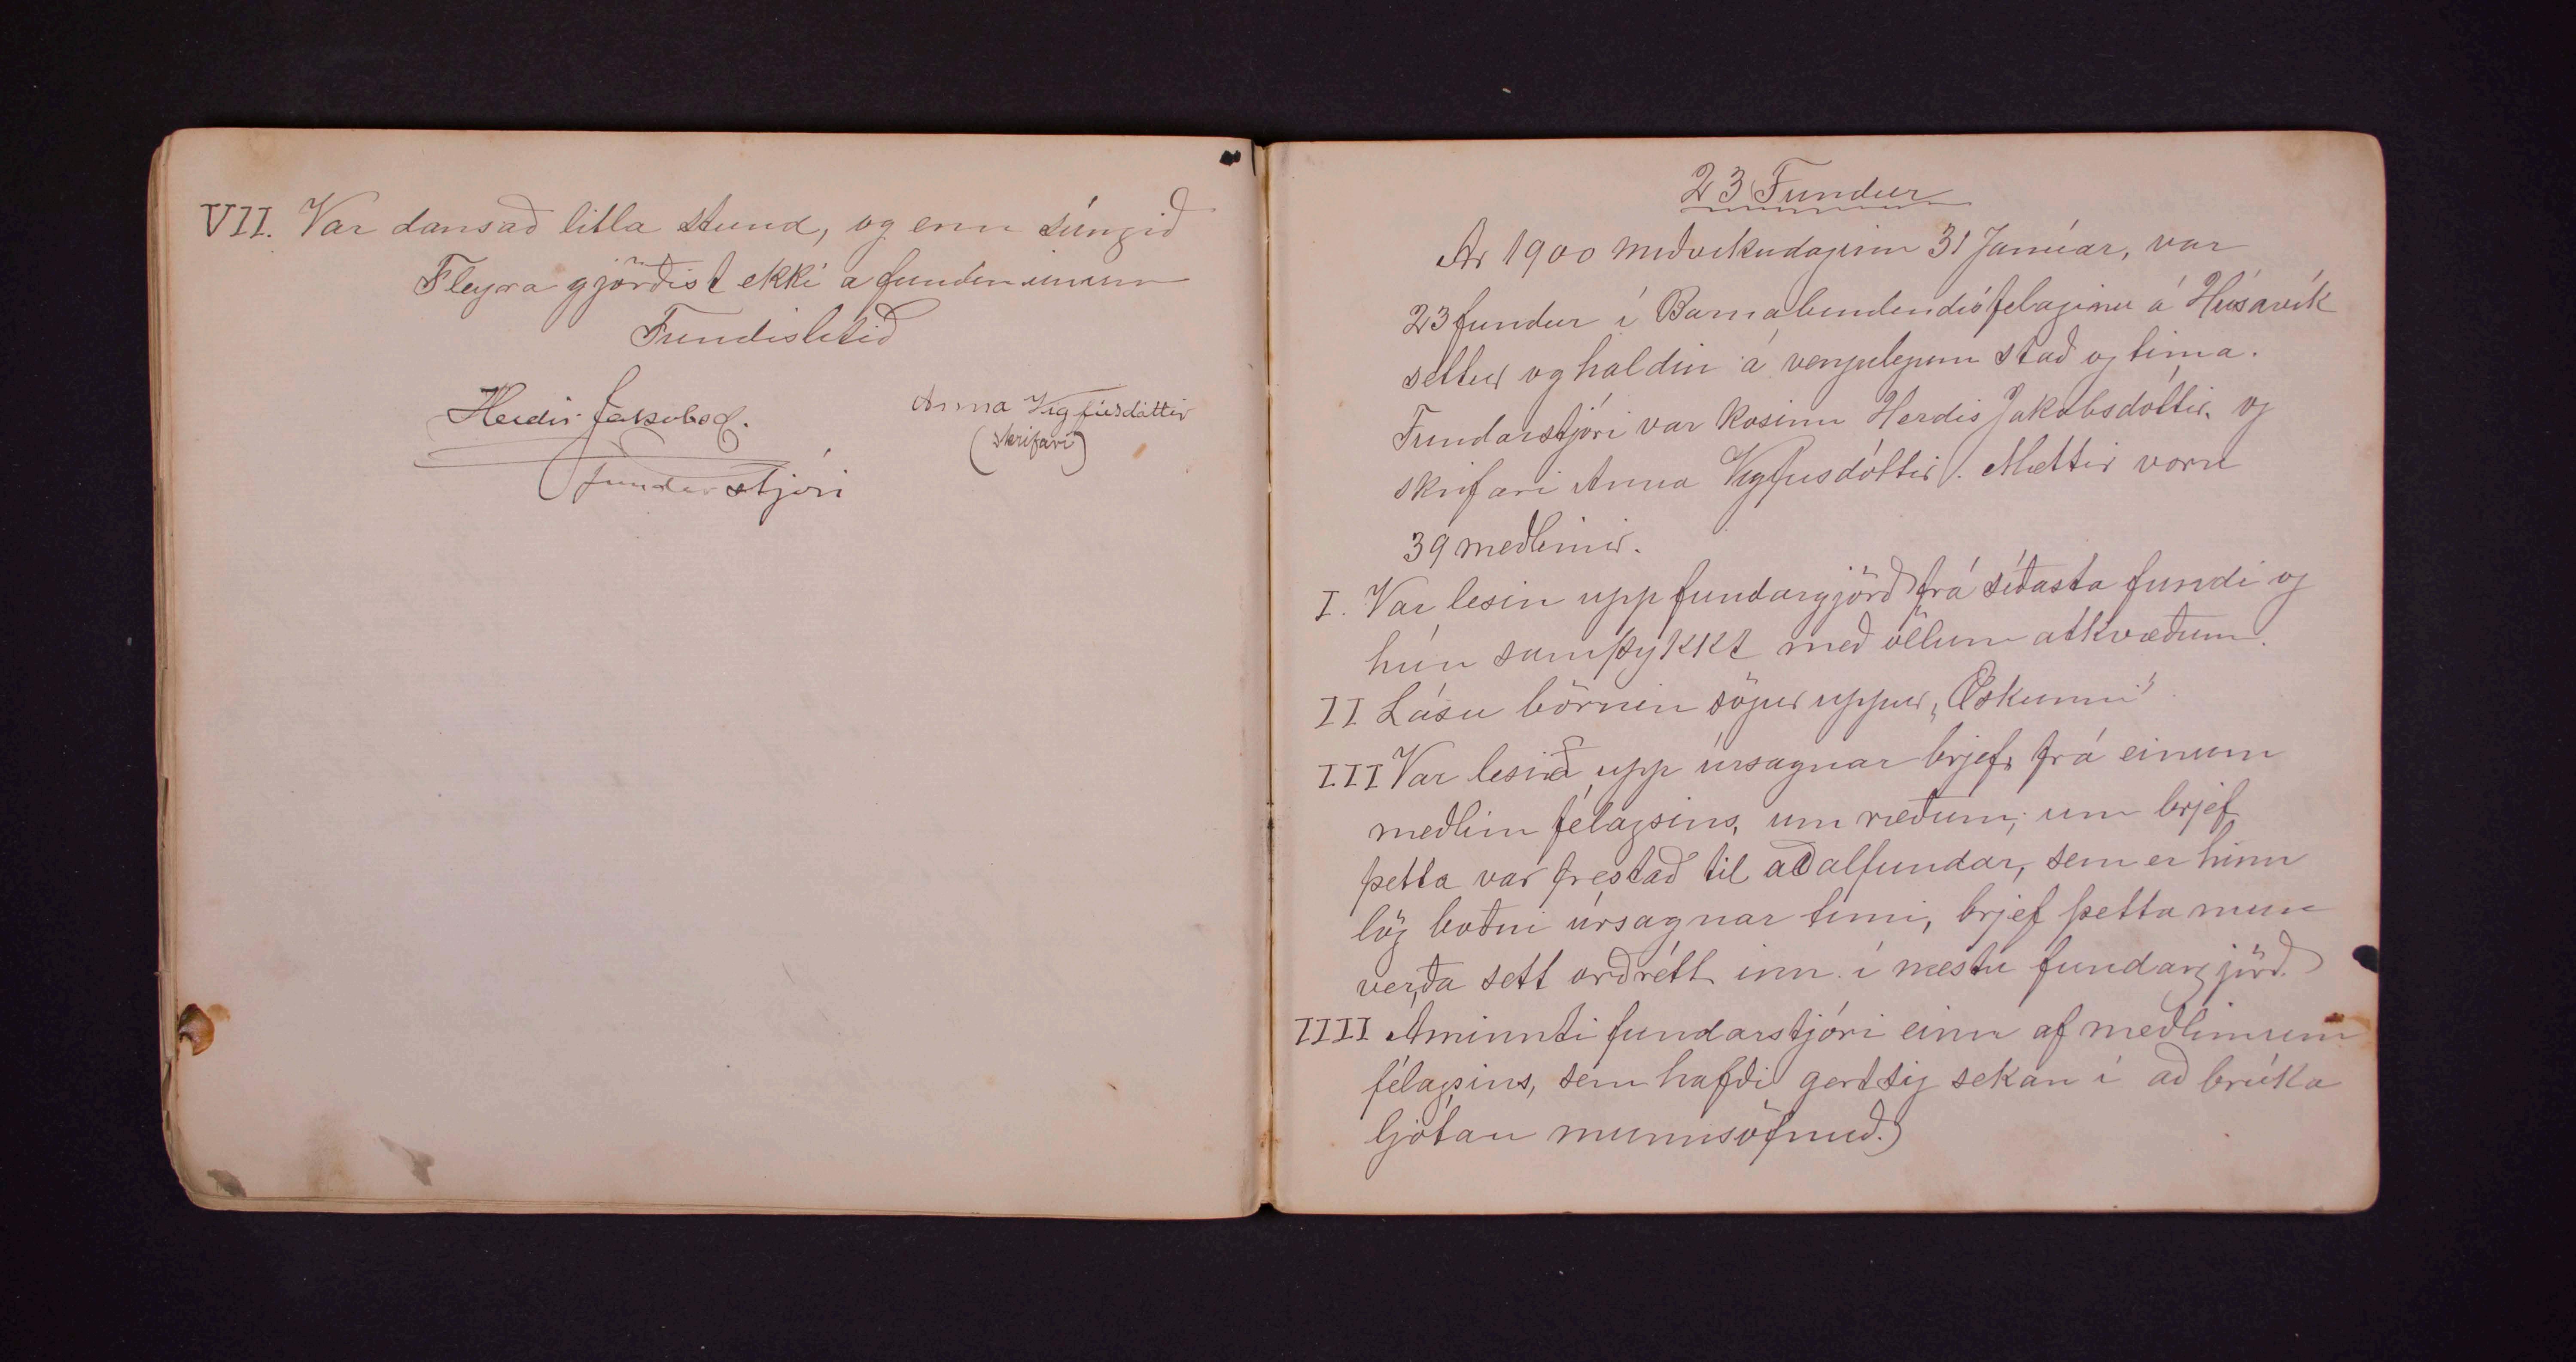 VII. Var dansað litla stund, og enn súngið
Fleyra gjörðist ekki a fundinumm
Fundislitið
Herdís Jakobsd.
fundarstjóri
Anna Vigfúsdóttir
(skrifari)
23 Fundur
Ár 1900 miðvikudaginn 31 Janúar, var
23 fundur í Barnabindendisfelaginu á Húsavík
settur og haldin á venjulegum stað og tíma.
Fundarstjóri var kosinn Herdís Jakobsdóttir og
skrifari Anna Vigfúsdóttir. Mættir voru
39 meðlimir.
I. Var lesin upp fundargjörð frá síðasta fundi og
hún samþykkt með öllum atkvæðum.
II Lásu börnin sögur uppur „Æskunni"
III Var lesið upp úrsagnar brjef frá einum
meðlim félagsins, um ræðum, um brjef
þetta var frestað til aðalfundar, sem er hinn
lög boðni úrsagnar tími, brjef þetta mun
verða sett orðrétt inn í næstu fundargjörð.
IIII Áminnti fundarstjóri einn af meðlimum
félagsins, sem hafði gert sig sekan í að brúka
ljótan munnsöfnuð.